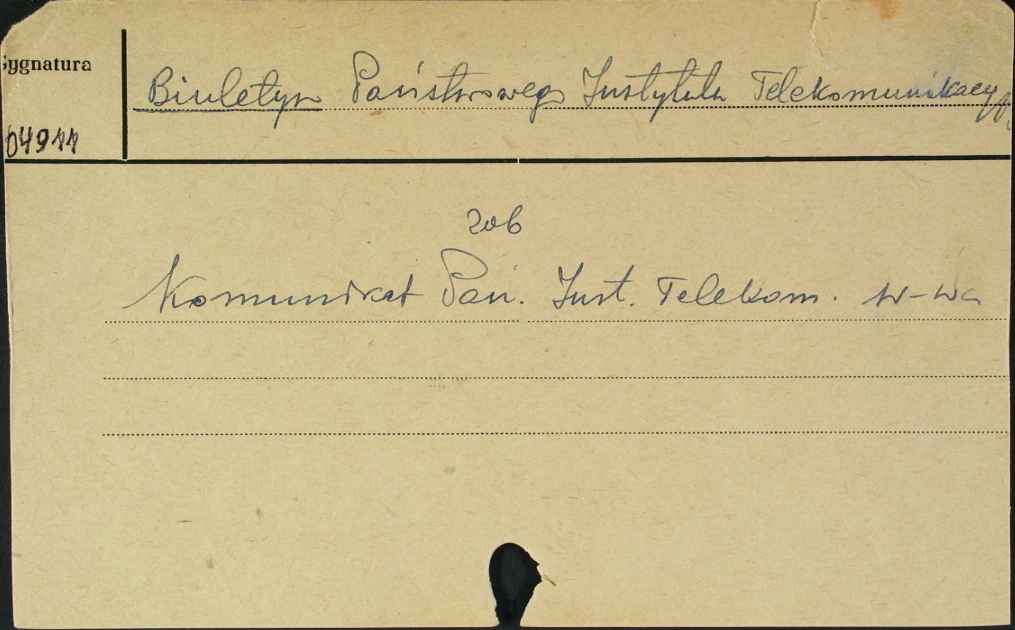 Sygnatura
Biuletyn Państwowego Instytutu Telekomunikacyj
04911
zob
Komunikat Pań. Inst. Telekom. W-wa